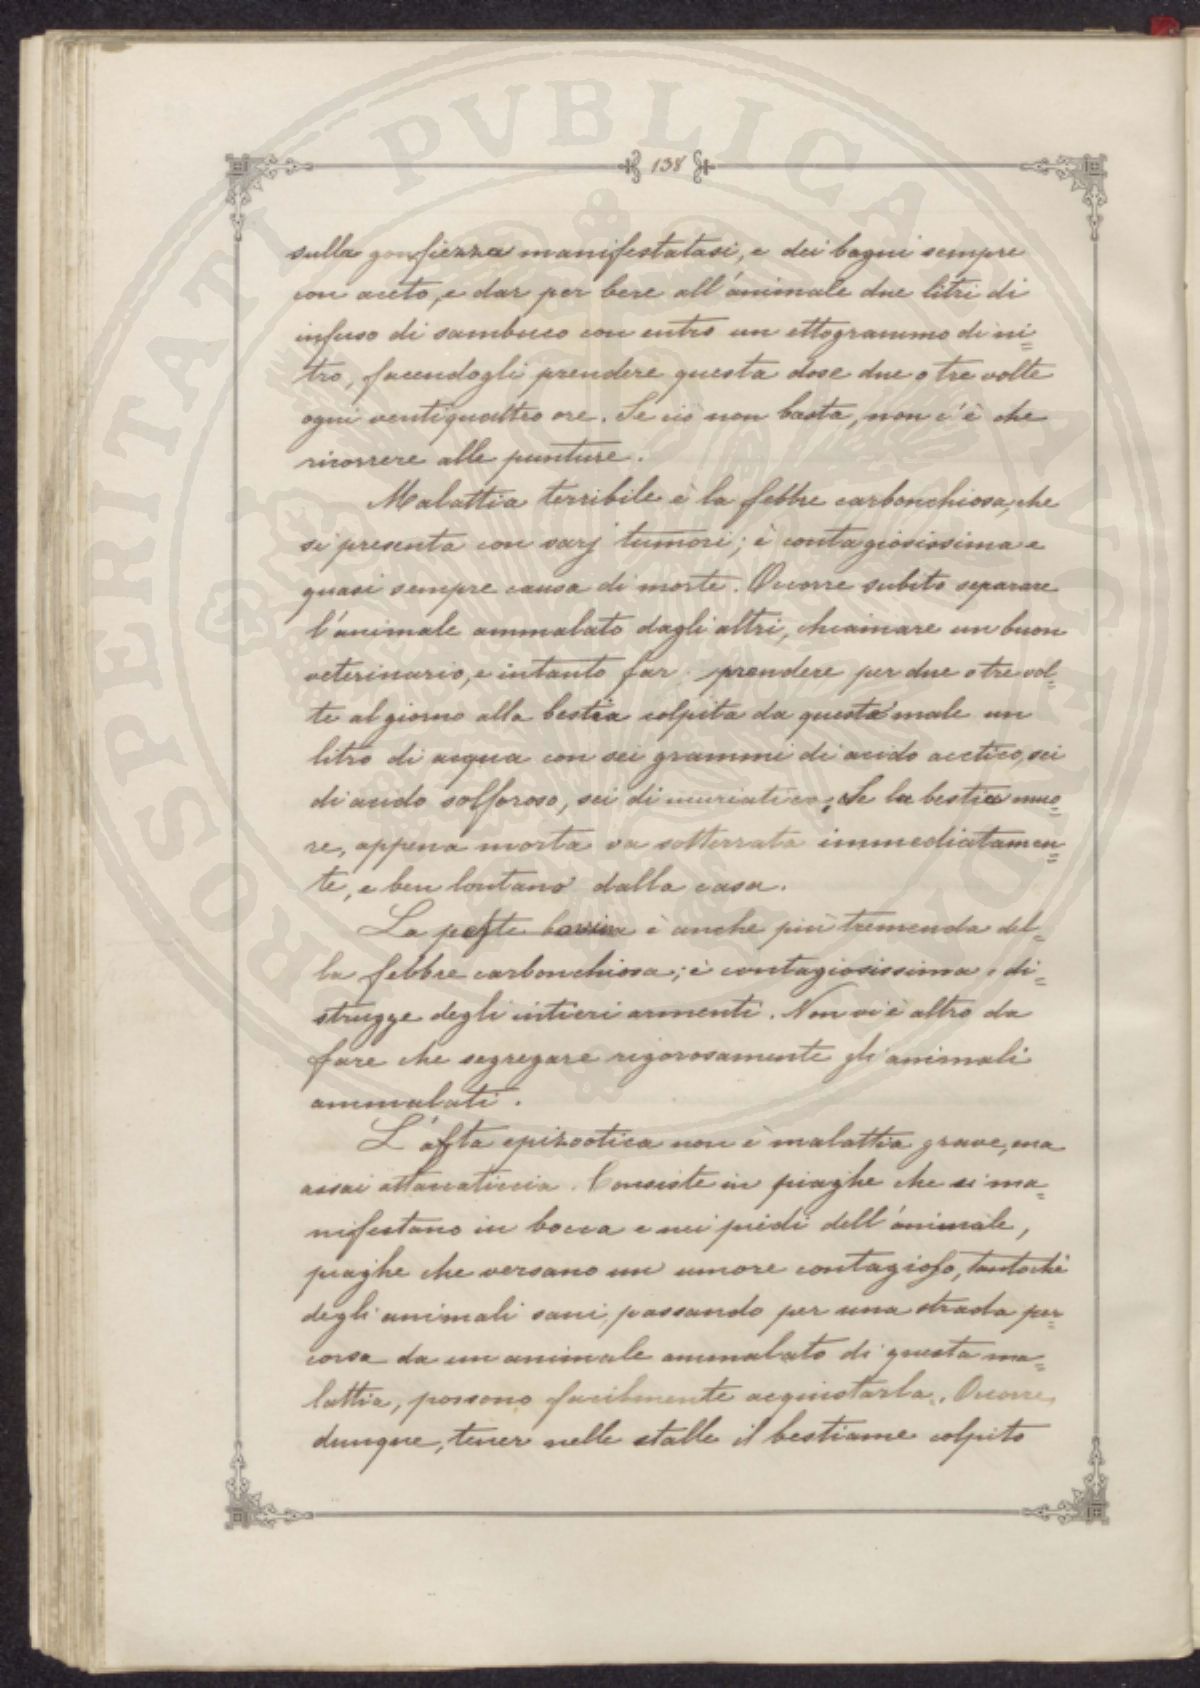 138
sulla gonfiezza manifestatasi, e dei bagni sempre
con aceto, e dar per bere all'animale due litri di
infuso di sambuco con entro un ettogrammo di ni=
tro, facendogli prendere questa dose due o tre volte
ogni ventiquattro ore. Se ciò non basta, non c'è che
ricorrere alle punture.
Malattia terribile è la febbre carbonchiosa, che
si presenta con varj tumori; è contagiosissima e
quasi sempre causa di morte. Occorre subito separare
l'animale ammalato dagli altri, chiamare un buon
veterinario, e intanto far prendere per due o tre vol=
te al giorno alla bestia colpita da questo male un
litro di acqua con sei grammi di acido acetico, sei
di acido solforoso, sei di muriatico; Se la bestia muo=
re, appena morta va sotterrata immediatamen=
te, e ben lontano dalla casa.
La peste bovina è anche più tremenda del=
la febbre carbonchiosa; è contagiosissima e di=
strugge degli intieri armenti. Non vi è altro da
fare che segregare rigorosamente gli animali
ammalati.
L'afta epizootica non è malattia grave, ma
assai attaccaticcia. Consiste in piaghe che si ma=
nifestano in bocca e nei piedi dell'animale,
piaghe che versano un umore contagioso, tantochè
degli animali sani, passando per una strada per=
corsa da un animale ammalato di questa ma=
lattia, possono facilmente acquistarla. Occorre,
dunque, tener nelle stalle il bestiame colpito
PROSPERITATI PVBLICAE AVGENDAE